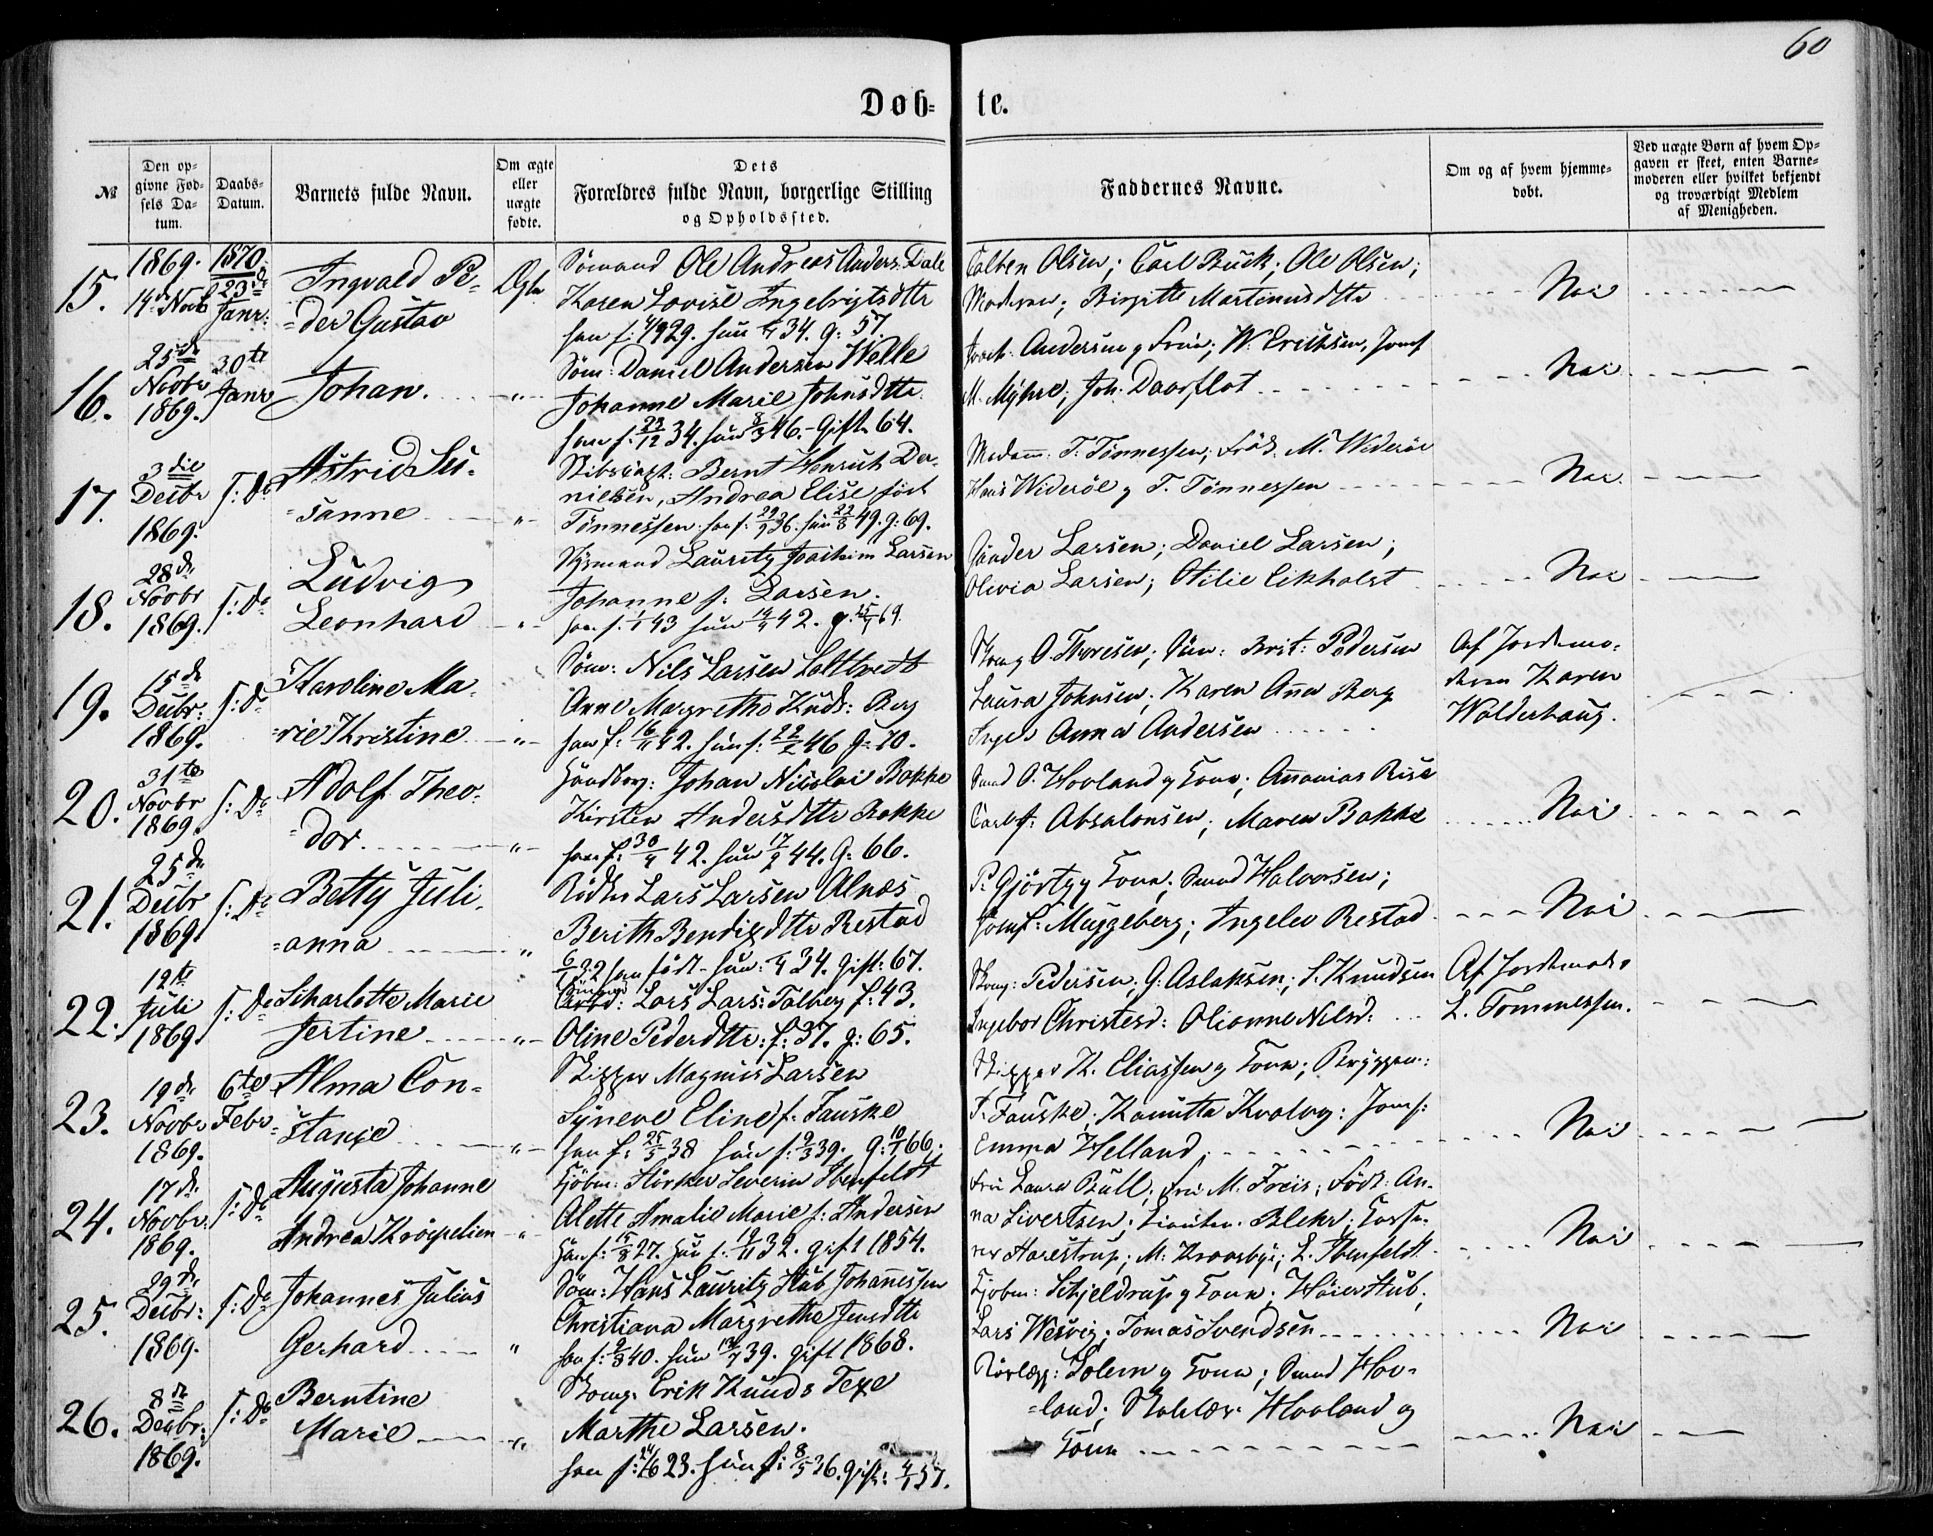 60
Døb- te.
№
Den opgivne Fødsels Datum.
Daabs-Datum.
Barnets fulde Navn.
Om ægte eller uægte fødte.
Dets Forældres fulde Navn, borgerlige Stilling og Opholdssted.
Faddernes Navne.
Om og af hvem hjemmedøbt.
Ved uægte Børn af hvem Opgaven er skeet, enten Barnemoderen eller hvilket bekjendt og troværdigt Medlem af Menigheden.
15. 1869. 14de Novb 1870. 23de Janr: Ingvald Pe-
=der Gustav Ægte
Sømand Ole Andreas Anders: Dale
Karen Lovise Ingebrigtsdtr
han f: 4/9 29. hun 34. g: 57.
Olsen; Carl Buck; Ole Olsen;
Moderen; Birgitte Martinusdtr Nei
16. 25de Novbr 1869. 30te Janr Johan. "
Søm: Daniel Andersen Welle
Johanne Marie Johnsdtr
han f: 23/12 34. hun 8/3 46. - Gift 64.
Andersen g Frue; W. Erichsen, Jomf
M. Myhre; Joh. Daasflot Nei
17. 3die Decbr 1869. f: Do Astrid Su-
=sanne "
Skibskapt: Bernt Henrich Da-
nielsen, Andrea Elise født
Tønnessen. han f: 29/9 36. hun 22/8 49. g: 69.
Madam: T. Tønnessen; Frøk. M. Widerøe
Hans Widerøe g T. Tønnessen Nei
18. 28de Novbr 1869. f: Do Ludvig
Leonhard "
Styrmand Lauritz Joachim Larsen
Johanne f: Larsen.
han f. 1/1 43 hun 14/4 42. g. 69.
Sander Larsen; Daniel Larsen;
Olivia Larsen; Otilie Eikholst Nei
19. 15de Decbr: 1869. f: Do Karoline Ma-
=rie Kristine "
Søm: Nils Larsen
Anne Margrethe Knds: Berg
han f: 16/11 42. hun f: 22/2 46 g: 70.
O. Thoresen; Brit: Pedersen
Laura Johnsen; Karen Ana Berg
Anna Andersen
Af Jordemo-
deren Karen
Walderhaug.
20. 31te Novbr 1869. f: Do Adolf Theo-
=dor "
Johan Nicolai Bakke
Kirsten Andersdtr Bakke
han f: 30/4 42. hun 17/2 44. G: 66.
O. Hovland g Kone; Ananias Rise
Absalonsen; Maren Bakke Nei
21. 25de Decbr 1869. f: Do Betty Juli-
=anna "
Lars Larsen Alnæs
Berith Bendixdtr Restad
6/1 32 han født - hun: 34. gift: 67.
P. Gjørtz g Kone; Halvorsen;
Jomf: Muggeberg; Ingelev Restad Nei
22. 12te Juli 1869. f: Do Scharlotte Marie
Jertine "
Lars Lars: Tolberg f: 43.
Oline Pedersdtr: f: 37. g: 65.
Pedersen, G: Aslaksen; S. Knudsen
Ingebor Christesd: Olianne Nilsd:
Af Jordemod.
L. Tommessen.
23. 19de Novbr 1869. 6te Febr Alma Con-
stanse "
Skipper Magnus Larsen
Syneve Eline f. Fauske
han f: 25/5 38 hun f: 9/3 39. G: 10/1 66.
Skipper K. Eliassen g Kone;
Fauske; Jomf:
Emma Helland. Nei
24. 17de Novbr: 1869. f: Do Augusta Johanne
Andrea Krøipelien "
Kjøbm: Stirker Severin Ibenfeldt
Alette Amalie Marie f: Andersen
Han f: 15/8 27. hun f. 19/11 32. gift 1854.
Fru Laura Bull; fru M. Freis; An-
na Sivertsen; Blehr;
Harestrup; M: Kroosby; L. Ibenfeldt Nei
25. 29de Decbr: 1869. f: Do Johannes Julius
Gerhard "
Søm: Hans Lauritz Stub Johannessen
Christiana Margrethe Jensdtr
han f: 2/8 40. hun 13/7 39. gift 1868.
Kjøbm: Schjeldrup g Kone; Høier Stub;
Lars Wesvig; Tomas Svendsen Nei
26. 8de Decbr: 1869. f: Do Berntine
Marie "
Erik Knuds Texe
Marthe Larsen.
han f: 14/6 23. hun f: 8/5 36. gift: 4/1 57.
Solem g Kone; Hov-
=land; Hovland og
Kone Nei